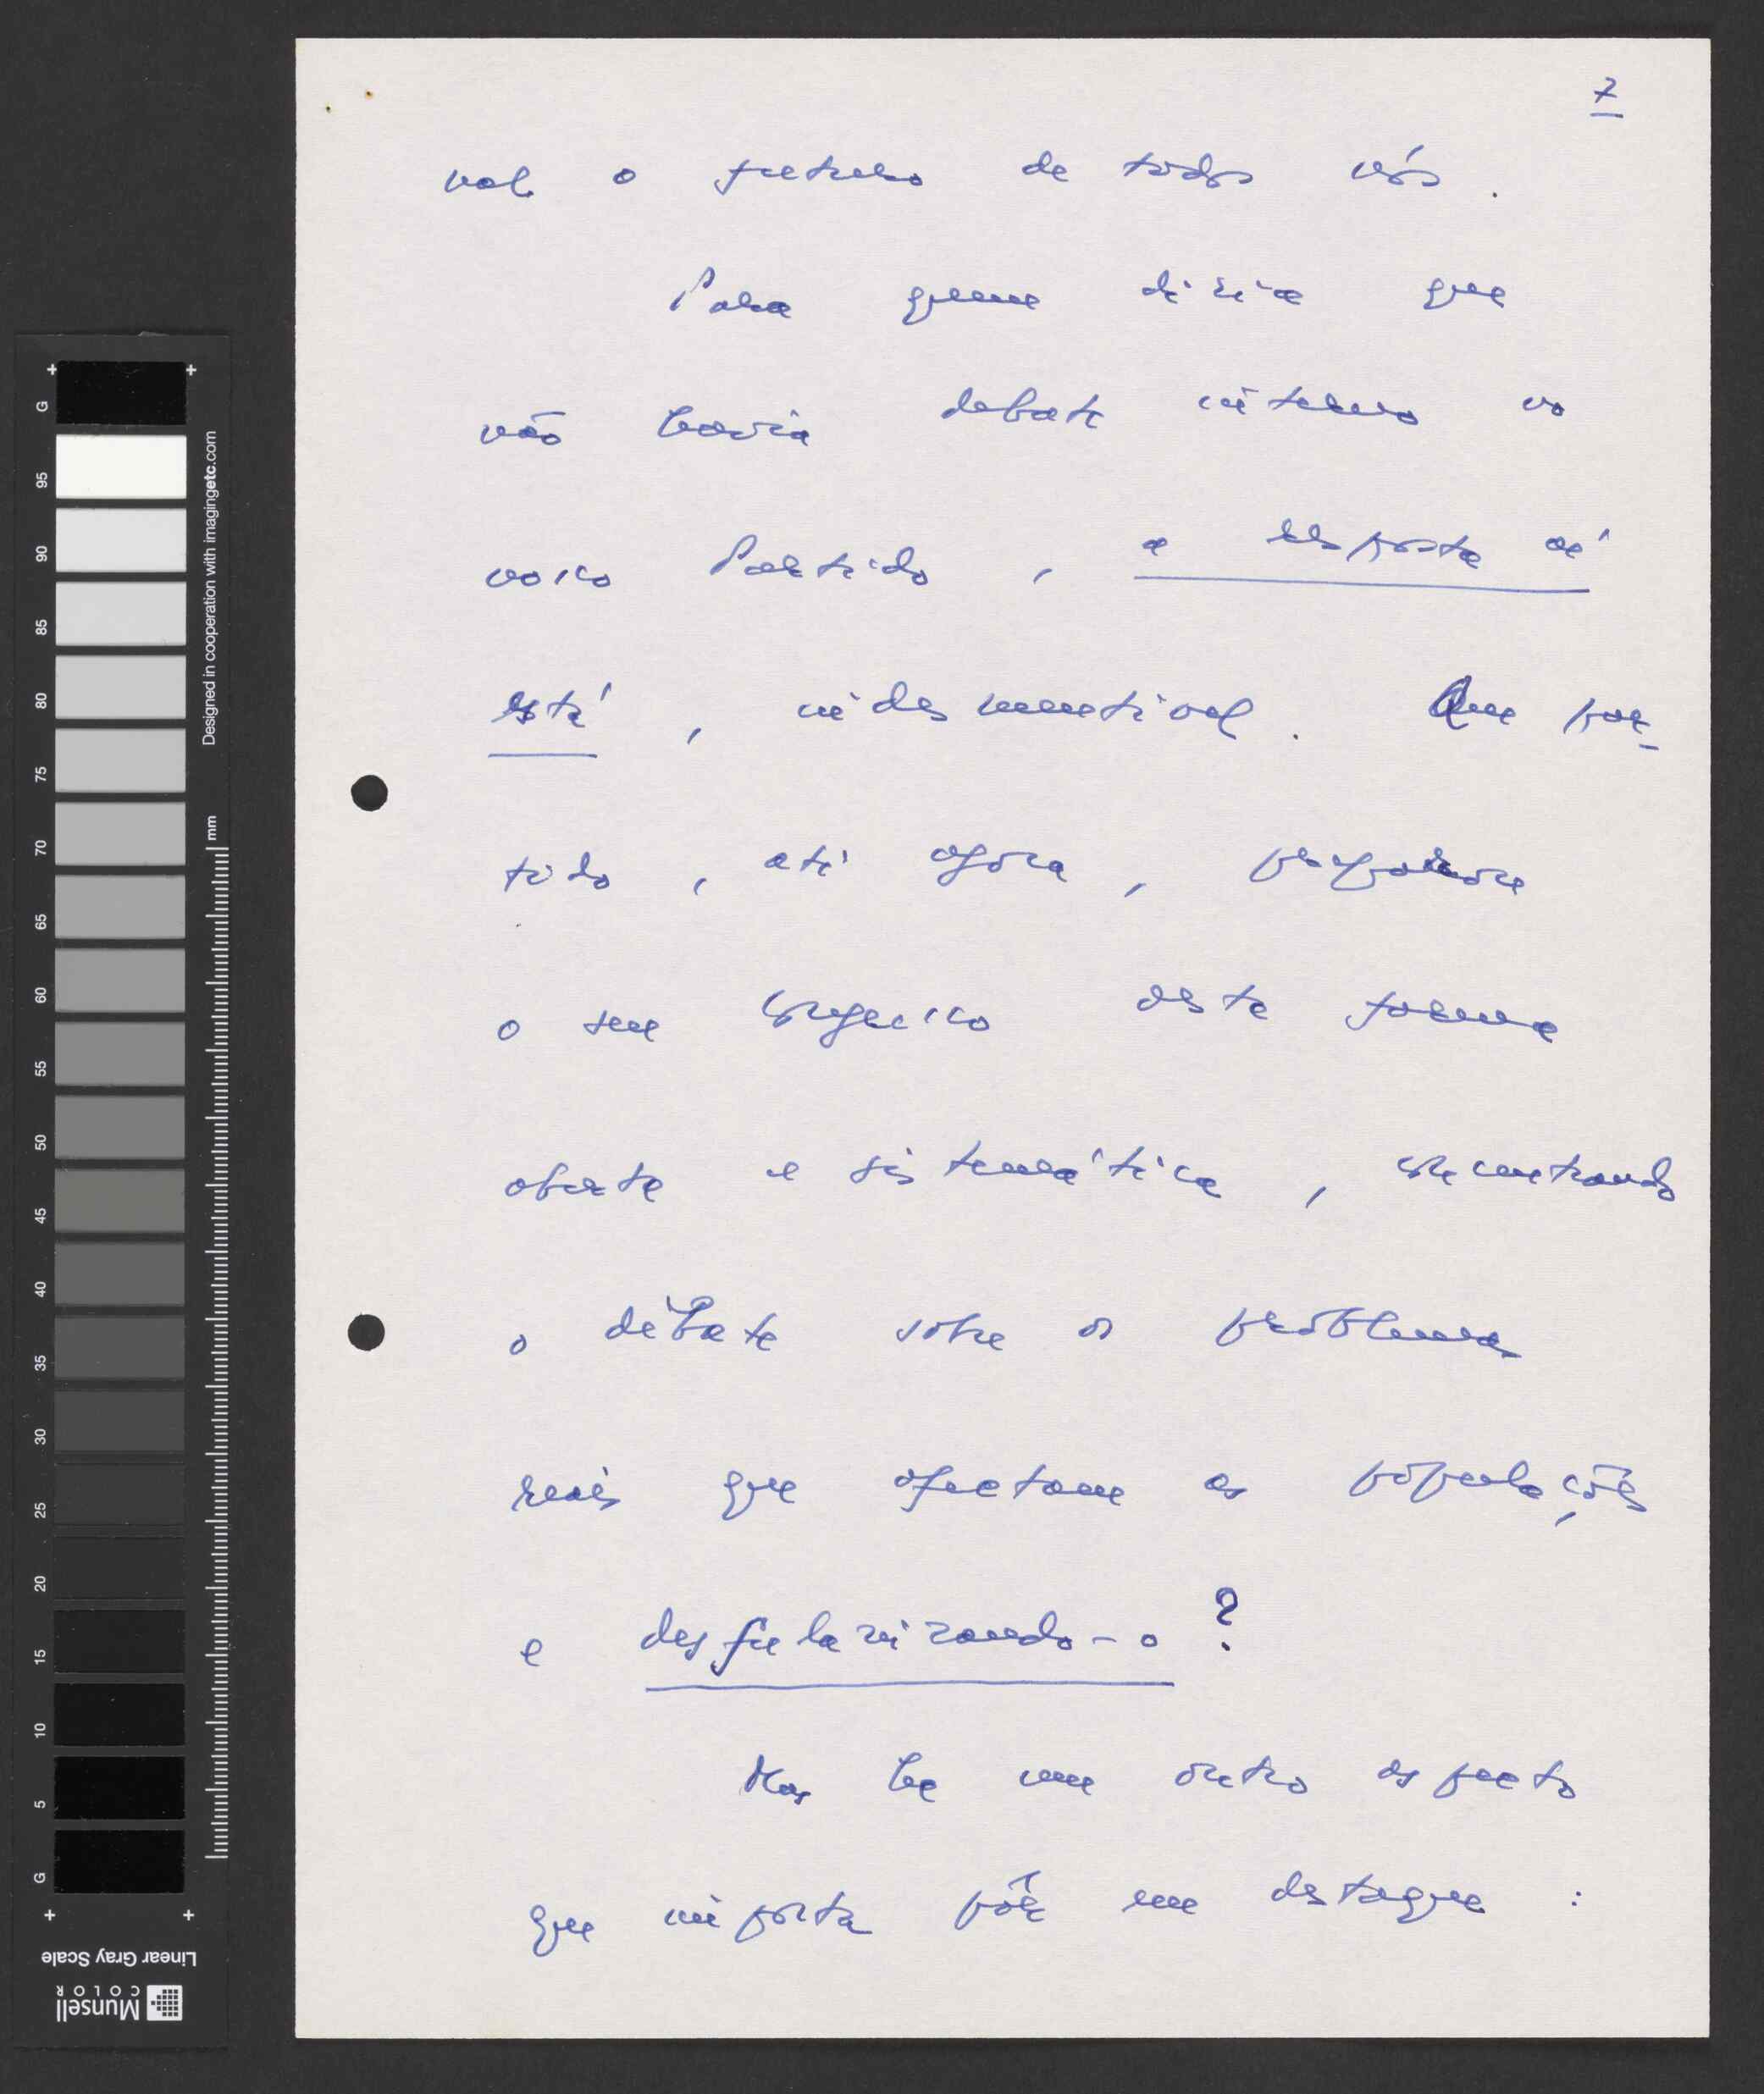 7
val o futuro de todos nós.
Para quem dizia que
não havia debate interno no
nosso Partido, a resposta aí
está, indesmentível. Que par-
tido, até agora, preparou
o seu Congresso desta forma
aberta e sistemática, centrando
o debate sobre os problemas
reais que afectam as populações
e desfulanizando-o?
Mas há um outro aspecto
que importa pôr em destaque:
G 95 90 85 80 75 70 65 60 55 50 45 40 35 30 25 20 15 10 5 G
Designed in cooperation with imagingetc.com
mm
Linear Gray Scale
Munsell
COLOR